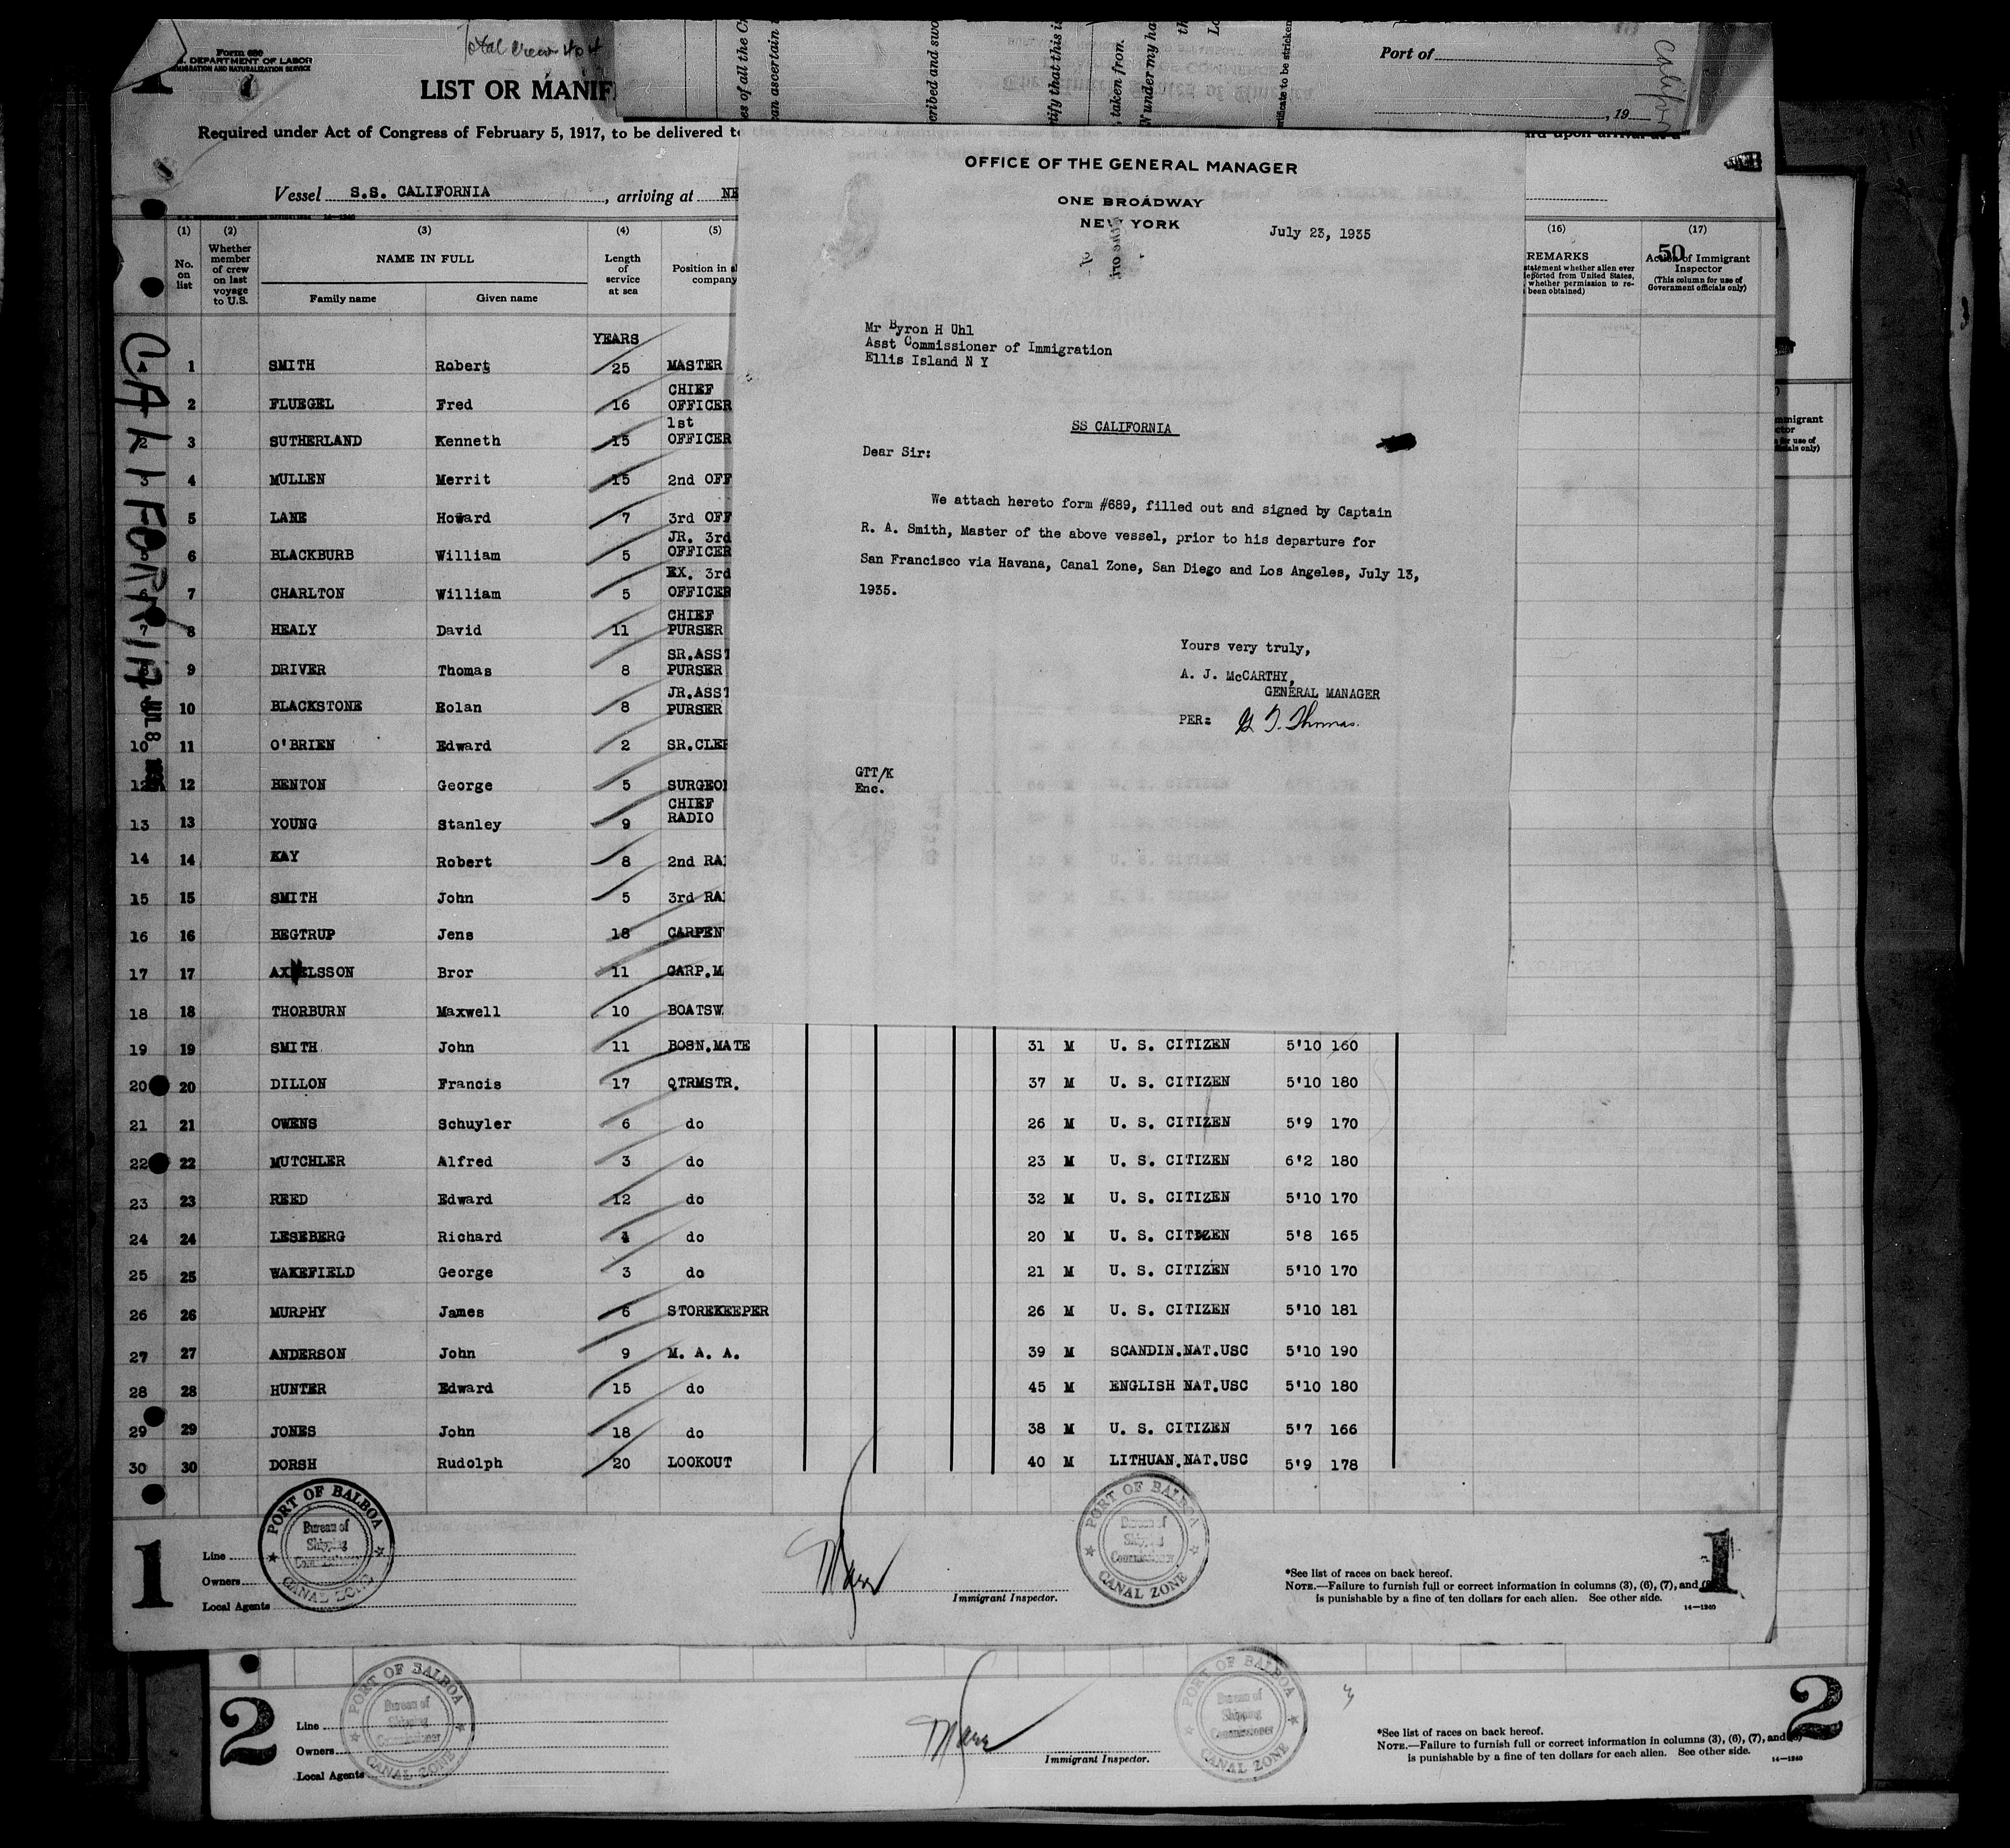 Form 680
DEPARTMENT OF LABOR
IMMIGRATION AND NATURALIZATION SERVICE
Total crew 404
LIST OR MANIF
Port of
, 19
Required under Act of Congress of February 5, 1917, to be delivered to
Vessel S.S. CALIFORNIA, arriving at NE
(1) (2) (3) (4) (5)
No. on list
Whether member of crew on last voyage to U.S.
NAME IN FULL
Family name Given name
Length of service at sea
Position in
company
(16) (17)
REMARKS
50
Action of Immigrant Inspector
(This column for use of Government officials only)
YEARS
1 SMITH Robert 25 MASTER
2 FLUEGEL Fred 16 CHIEF OFFICER
3 SUTHERLAND Kenneth 15 1st OFFICER
4 MULLEN Merrit 15 2nd OFF
5 LANE Howard 7 3rd OFF
6 BLACKBURB William 5 JR. 3rd OFFICER
7 CHARLTON William 5 EX. 3rd OFFICER
8 HEALY David 11 CHIEF PURSER
9 DRIVER Thomas 8 SR.ASST PURSER
10 BLACKSTONE Eolan 8 JR.ASST PURSER
10 11 O'BRIEN Edward 2 SR.CLE
12 12 BENTON George 5 SURGEO
13 13 YOUNG Stanley 9 CHIEF RADIO
14 14 KAY Robert 8 2nd RA
15 15 SMITH John 5 3rd RA
16 16 BEGTRUP Jens 18 CARPEN
17 17 AXELSSON Bror 11 CARP.M
18 18 THORBURN Maxwell 10 BOATSW
19 19 SMITH John 11 BOSN.MATE 31 M U. S. CITIZEN 5'10 160
20 20 DILLON Francis 17 QTRMSTR. 37 M U. S. CITIZEN 5'10 180
21 21 OWENS Schuyler 6 do 26 M U. S. CITIZEN 5'9 170
22 22 MUTCHLER Alfred 3 do 23 M U. S. CITIZEN 6'2 180
23 23 REED Edward 12 do 32 M U. S. CITIZEN 5'10 170
24 24 LESEBERG Richard 4 do 20 M U. S. CITIZEN 5'8 165
25 25 WAKEFIELD George 3 do 21 M U. S. CITIZEN 5'10 170
26 26 MURPHY James 6 STOREKEEPER 26 M U. S. CITIZEN 5'10 181
27 27 ANDERSON John 9 M. A. A. 39 M SCANDIN.NAT.USC 5'10 190
28 28 HUNTER Edward 15 do 45 M ENGLISH NAT.USC 5'10 180
29 29 JONES John 18 do 38 M U. S. CITIZEN 5'7 166
30 30 DORSH Rudolph 20 LOOKOUT 40 M LITHUAN.NAT.USC 5'9 178
CALIFORNIA
OFFICE OF THE GENERAL MANAGER
ONE BROADWAY
NEW YORK
July 23, 1935
Mr Byron H Uhl
Asst Commissioner of Immigration
Ellis Island N Y
SS CALIFORNIA
Dear Sir:
We attach hereto form #689, filled out and signed by Captain
R. A. Smith, Master of the above vessel, prior to his departure for
San Francisco via Havana, Canal Zone, San Diego and Los Angeles, July 13,
1935.
Yours very truly,
A. J. McCARTHY,
GENERAL MANAGER
PER: G T. Thomas.
GTT/K
Enc.
PORT OF BALBOA
Bureau of Shipping Commissioner
CANAL ZONE
PORT OF BALBOA
Bureau of Shipping Commissioner
CANAL ZONE
1
Line
Owners
Local Agents
Immigrant Inspector.
*See list of races on back hereof.
NOTE.—Failure to furnish full or correct information in columns (3), (6), (7), and
is punishable by a fine of ten dollars for each alien. See other side.
14—1240
1
PORT OF BALBOA
Bureau of Shipping Commissioner
CANAL ZONE
PORT OF BALBOA
Bureau of Shipping Commissioner
CANAL ZONE
2
Line
Owners
Local Agents
Immigrant Inspector.
*See list of races on back hereof.
NOTE.—Failure to furnish full or correct information in columns (3), (6), (7), and
is punishable by a fine of ten dollars for each alien. See other side.
14—1240
2